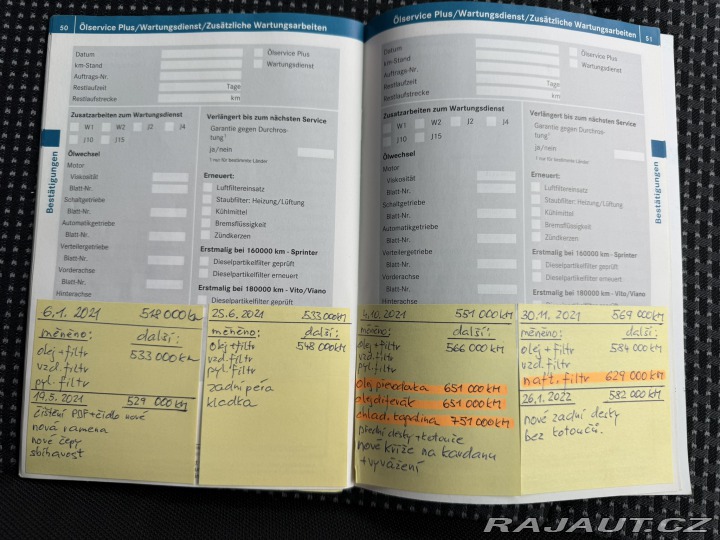 50 Ölservice Plus/Wartungsdienst/Zusätzliche Wartungsarbeiten
Datum
km-Stand
Auftrags-Nr.
Restlaufzeit Tage
Restlaufstrecke km
Ölservice Plus
Wartungsdienst
Zusatzarbeiten zum Wartungsdienst
W1 W2 J2 J4
J10 J15
Ölwechsel
Motor
Viskosität
Blatt-Nr.
Schaltgetriebe
Blatt-Nr.
Automatikgetriebe
Blatt-Nr.
Verteilergetriebe
Blatt-Nr.
Vorderachse
Blatt-Nr.
Hinterachse
Verlängert bis zum nächsten Service
Garantie gegen Durchros-
tung¹
ja/nein
1 nur für bestimmte Länder
Erneuert:
Luftfiltereinsatz
Staubfilter: Heizung/Lüftung
Kühlmittel
Bremsflüssigkeit
Zündkerzen
Erstmalig bei 160000 km - Sprinter
Dieselpartikelfilter geprüft
Dieselpartikelfilter erneuert
Erstmalig bei 180000 km - Vito/Viano
Bestätigungen
6.1. 2021 518 000 km
měněno: další:
olej+filtr 533 000 km
vzd. filtr
pyl. filtr
19.5. 2021 529 000 km
čištění PDF+čidlo nové
nová ramena
nové čepy
sbíhavost
25.6. 2021 533 000 km
měněno: další:
olej+filtr 548 000 km
vzd. filtr
pyl. filtr
zadní péra
kladka
Ölservice Plus/Wartungsdienst/Zusätzliche Wartungsarbeiten 51
Datum
km-Stand
Auftrags-Nr.
Restlaufzeit Tage
Restlaufstrecke km
Ölservice Plus
Wartungsdienst
Zusatzarbeiten zum Wartungsdienst
W1 W2 J2 J4
J10 J15
Ölwechsel
Motor
Viskosität
Blatt-Nr.
Schaltgetriebe
Blatt-Nr.
Automatikgetriebe
Blatt-Nr.
Verteilergetriebe
Blatt-Nr.
Vorderachse
Blatt-Nr.
Hinterachse
Verlängert bis zum nächsten Service
Garantie gegen Durchros-
tung¹
ja/nein
1 nur für bestimmte Länder
Erneuert:
Luftfiltereinsatz
Staubfilter: Heizung/Lüftung
Kühlmittel
Bremsflüssigkeit
Zündkerzen
Erstmalig bei 160000 km - Sprinter
Dieselpartikelfilter geprüft
Dieselpartikelfilter erneuert
Erstmalig bei 180000 km - Vito/Viano
Bestätigungen
4.10. 2021 551 000 km
měněno: další:
olej+filtr 566 000 km
vzd. filtr
pyl. filtr
olej převodovka 651 000 km
olej difevák 651 000 km
chlad. kapalina 751 000 km
přední desky+kotouče
nové kříže na kardanu
+vyvážení
30.11. 2021 569 000 km
měněno: další:
olej+filtr 584 000 km
vzd. filtr
naft. filtr 629 000 km
26.1. 2022 582 000 km
nové zadní desky
bez kotoučů.
RAJAUT.CZ